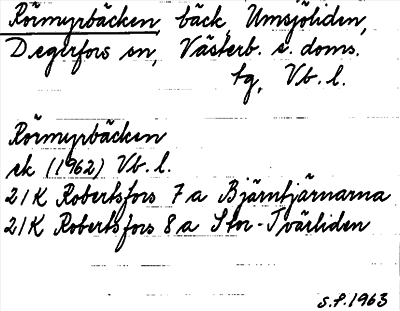 Rörmyrbäcken, bäck, Umsjöliden,
Degerfors sn, Västerb. s. doms.
tg, Vb. l.
Rörmyrbäcken
ek (1962) Vb. l.
21K Robertsfors 7a Bjärntjärnarna
21K Robertsfors 8a Stor-Tvärliden
S.F. 1963